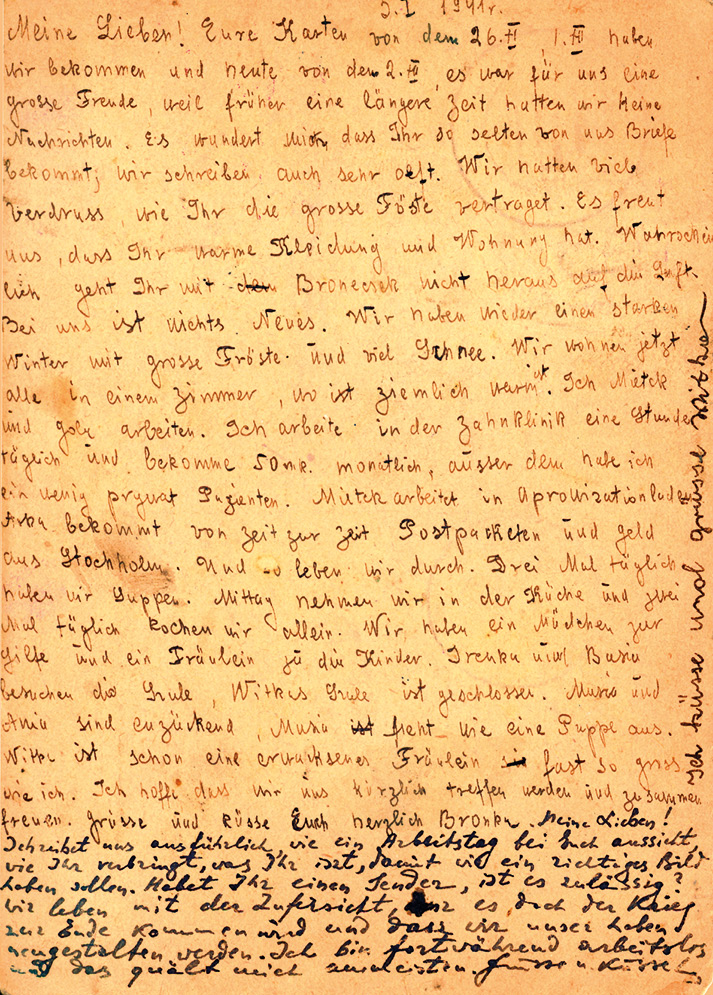 3.I 1941r.
Meine Lieben! Eure Karten von dem 26.XI, 1.XII haben
wir bekommen und heute von dem 2.XII, es war für uns eine
grosse Freude, weil früher eine längere Zeit hatten wir keine
Nachrichten. Es wundert mich, dass Ihr so selten von uns Briefe
bekommt, wir schreiben auch sehr oeft. Wir hatten viel
Verdruss, wie Ihr die grosse Föste vertraget. Es freut
uns, dass Ihr warme Kleidung und Wohnung hat. Wahrschein
lich geht Ihr mit Bronecsek nicht heraus auf die Luft.
Bei uns ist nichts Neues. Wir haben wieder einen starken
Winter mit grosse Fröste und viel Schnee. Wir wohnen jetzt
alle in einem Zimmer, wo ist ziemlich warm. Ich Mietek
und gehe arbeiten. Ich arbeite in der Zahnklinik eine Stunde
täglich und bekomme 50 mk. monatlich, ausser dem habe ich
ein wenig prywat Pazienten. Mietek arbeitet in Aprowizationladen
bekommt von zeit zur zeit Postpacketen und geld
aus Stochholm. Und so leben wir durch. Drei Mal täglich
haben wir Suppen. Mittag nehmen wir in der Küche und zwei
Mal täglich kochen wir allein. Wir haben ein Mädchen zur
Hilfe und ein Fräulein zu die Kinder. Irenka und Basia
besuchen die Szule, Witkas Szule ist geschlossen. Musia und
Ania sind enzückend, Musia ist sieht wie eine Puppe aus.
Witka ist schon eine erwachsenes Fräulein fast so gross
wie ich. Ich hoffe dass wir uns kürzlich treffen werden und zusammen
freuen. Grüsse und küsse Euch herzlich Bronka. Meine Lieben!
Schreibet uns ausführlich, wie ein Arbeitstag bei Euch aussieht,
wie Ihr verbringt, was Ihr isst, damit wir ein richtiges Bild
haben sollen. Habet Ihr einen Sender, ist es zulässig?
Wir leben mit der Zufersicht, es doch der Krieg
zur Ende kommen wird und dass wir unser Leben
neugestalten werden. Ich bin fortwährend arbeitslos
und das quält mich zumeisten. Grüsse u. Küsse
Ich küsse und grüsse Witka